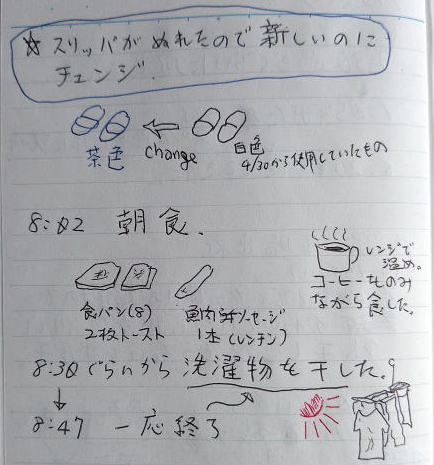 ☆ スリッパがぬれたので新しいのに
チェンジ.
茶色
change
白色
4/30から使用していたもの
8:02 朝食.
レンジで
温め。
コーヒーものみ
ながら食した。
食パン(8)
2枚トースト
魚肉ソーセージ
1本(レンチン)
8:30ぐらいから洗濯物を干した。
↓
8:47 一応終了